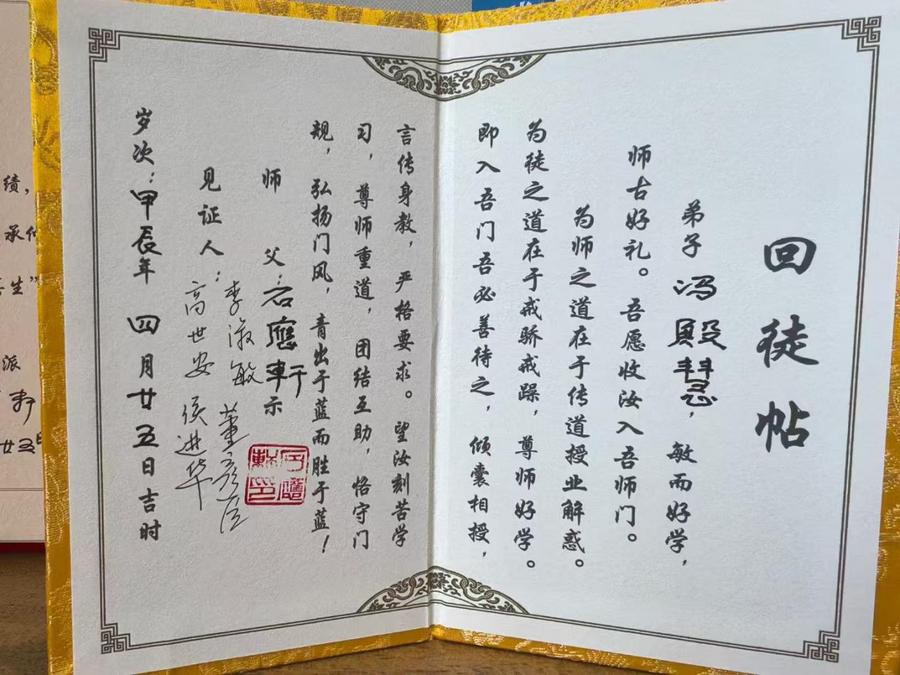 回徒帖
弟子冯殿慧，敏而好学，
师古好礼。吾愿收汝入吾师门。
为师之道在于传道授业解惑。
为徒之道在于戒骄戒躁，尊师好学。
即入吾门吾必善待之，倾囊相授，
言传身教，严格要求。望汝刻苦学
习，尊师重道，团结互助，恪守门
规，弘扬门风，青出于蓝而胜于蓝！
师 父：石應軒示
见证人：李淑敏 董彦臣
高世安 侯进华
岁次：甲辰年 四月廿五日吉时
绩，
承
生”
派